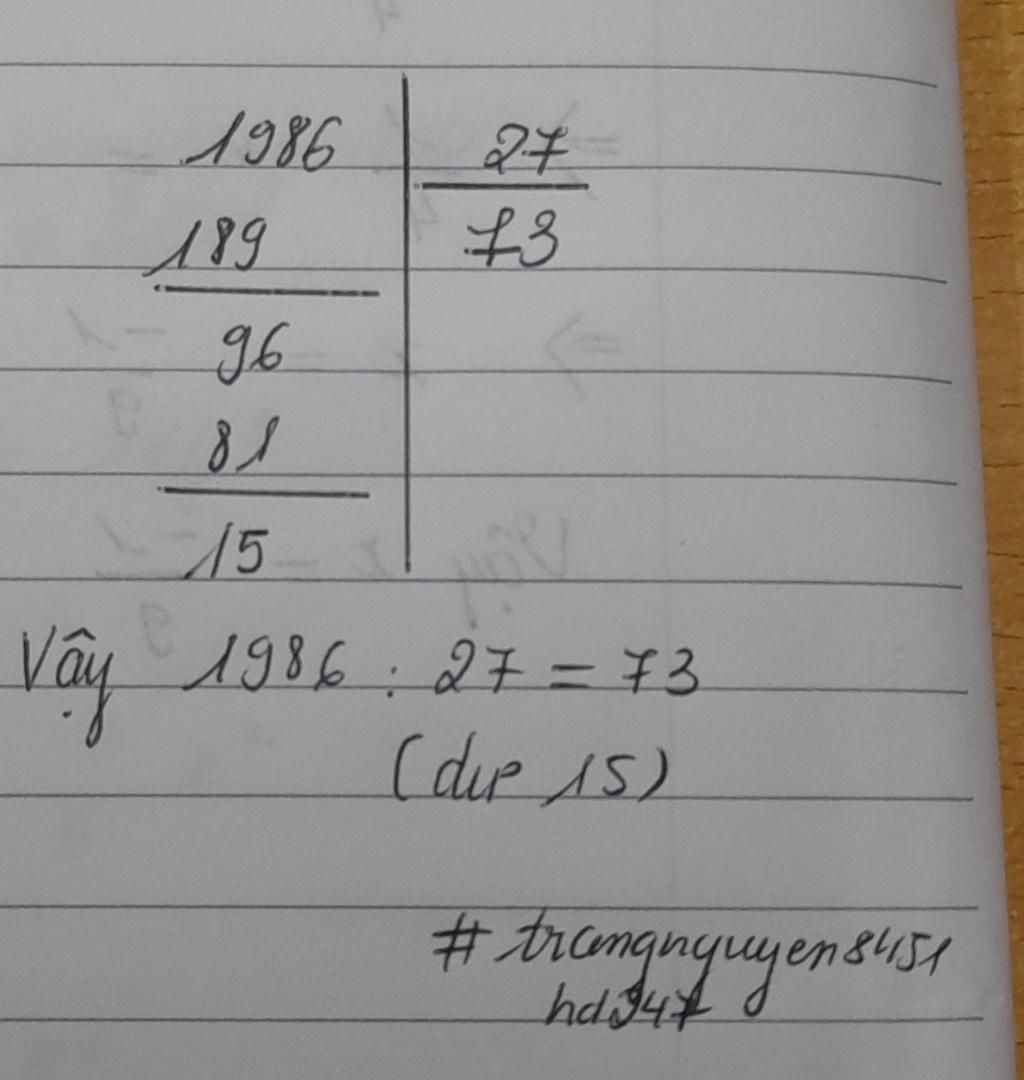 1986 27
189 73
96
81
15
Vậy 1986 : 27 = 73
(dư 15)
# trangnguyen8451
hd947